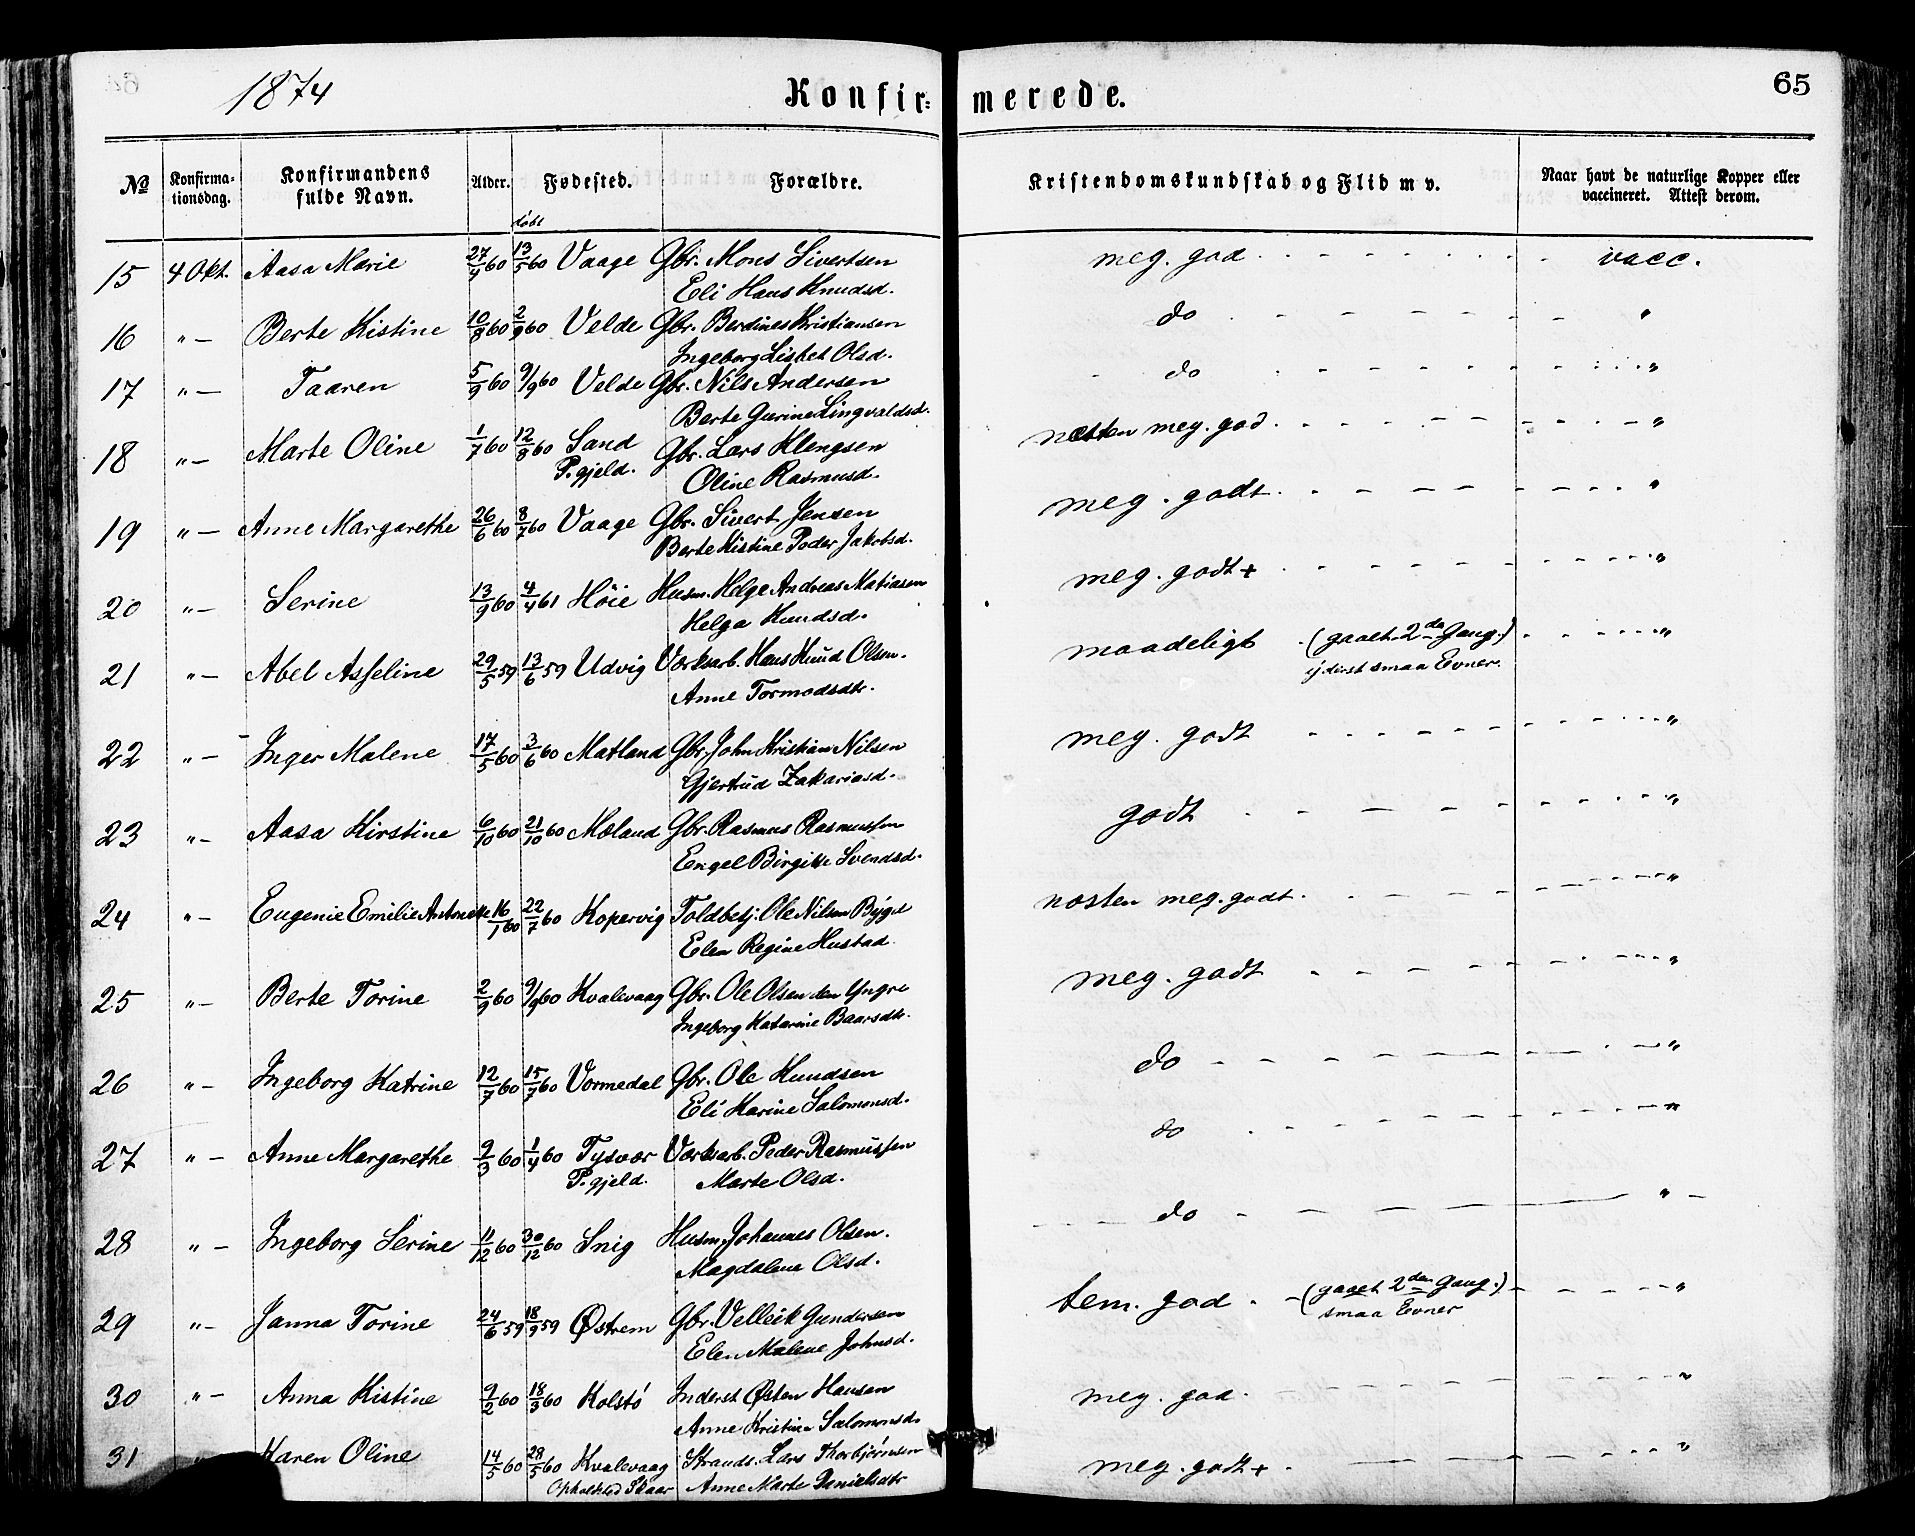 1874 Konfir= merede. 65
No Konfirma- tionsdag. Konfirmandens fulde Navn. Alder. Fødested. Forældre. Kristendomskundskab og Flid m v. Naar havt de naturlige Kopper eller vaccineret. Attest derom.
døbt
15 4 Okt. Aasa Marie 27/4 60 13/5 60 Vaage Gbr. Mons Sivertsen meg. god vacc.
Eli Hans Knudsd.
16 " — Berte Kistine 10/8 60 2/9 60 Velde Gbr. Berdines Kristiansen do "
Ingeborg Lisbet Olsd.
17 " — Taaren 5/9 60 9/9 60 Velde Gbr. Nils Andersen do "
Berte Gurine Lingvaldsd.
18 " — Marte Oline 1/7 60 12/8 60 Sand Gbr. Lars Klengsen næsten meg. god. "
P.gjeld. Oline Rasmusd.
19 " — Anne Margarethe 26/6 60 8/7 60 Vaage Gbr. Sivert Jensen meg. godt. "
Berte Kistine Peder Jakobsd.
20 " — Serine 13/9 60 4/4 61 Höie Husm. Helge Andreas Matiasen meg. godt + "
Helga Knudsd.
21 " — Abel Asseline 29/5 59 13/6 59 Udvig Værksarb. Hans Knud Olsen. maadeligt (gaaet 2de Gang.) "
Anne Tormodsdtr. yderst smaa Evner.
22 " — Inger Malene 17/5 60 3/6 60 Matland Gbr. John Kristian Nilsen meg. godt "
Gjertrud Zakariasd.
23 " — Aasa Kirstine 6/10 60 21/10 60 Mæland Gbr. Rasmus Rasmussen godt "
Engel Birgitte Svendsd.
24 " — Eugenie Emilie Antonette 16/1 60 22/7 60 Kopervig Toldbetj. Ole Nilsen Bygd næsten meg. godt. "
Elen Regine Hustad
25 " — Berte Torine 2/9 60 9/9 60 Kvalevaag Gbr. Ole Olsen den Yngre meg. godt "
Ingeborg Katarine Baarsdtr.
26 " — Ingeborg Katrine 12/7 60 15/7 60 Vormedal Gbr. Ole Knudsen do "
Eli Karine Salomonsd.
27 " — Anne Margarethe 9/3 60 1/4 60 Tysvær Værksarb. Peder Rasmussen do "
P.gjeld. Marte Olsd.
28 " — Ingeborg Serine 11/12 60 30/12 60 Snig Husm. Johannes Olsen. do "
Magdalene Olsd.
29 " — Janna Torine 24/6 59 18/9 59 Østrem Gbr. Velleik Gundersen tem. god. (gaaet 2den Gang.) "
Elen Malene Johnsd. smaa Evner
30 " — Anna Kistine 9/2 60 18/3 60 Kolstö Inderst Østen Hansen meg. god. "
Anne Kristine Salomonsd.
31 Karen Oline 14/5 60 28/5 60 Kvalevaag Strands. Lars Thorbjørnsen meg. godt + "
Opholdsted Skaar Anne Marte Danielsdtr